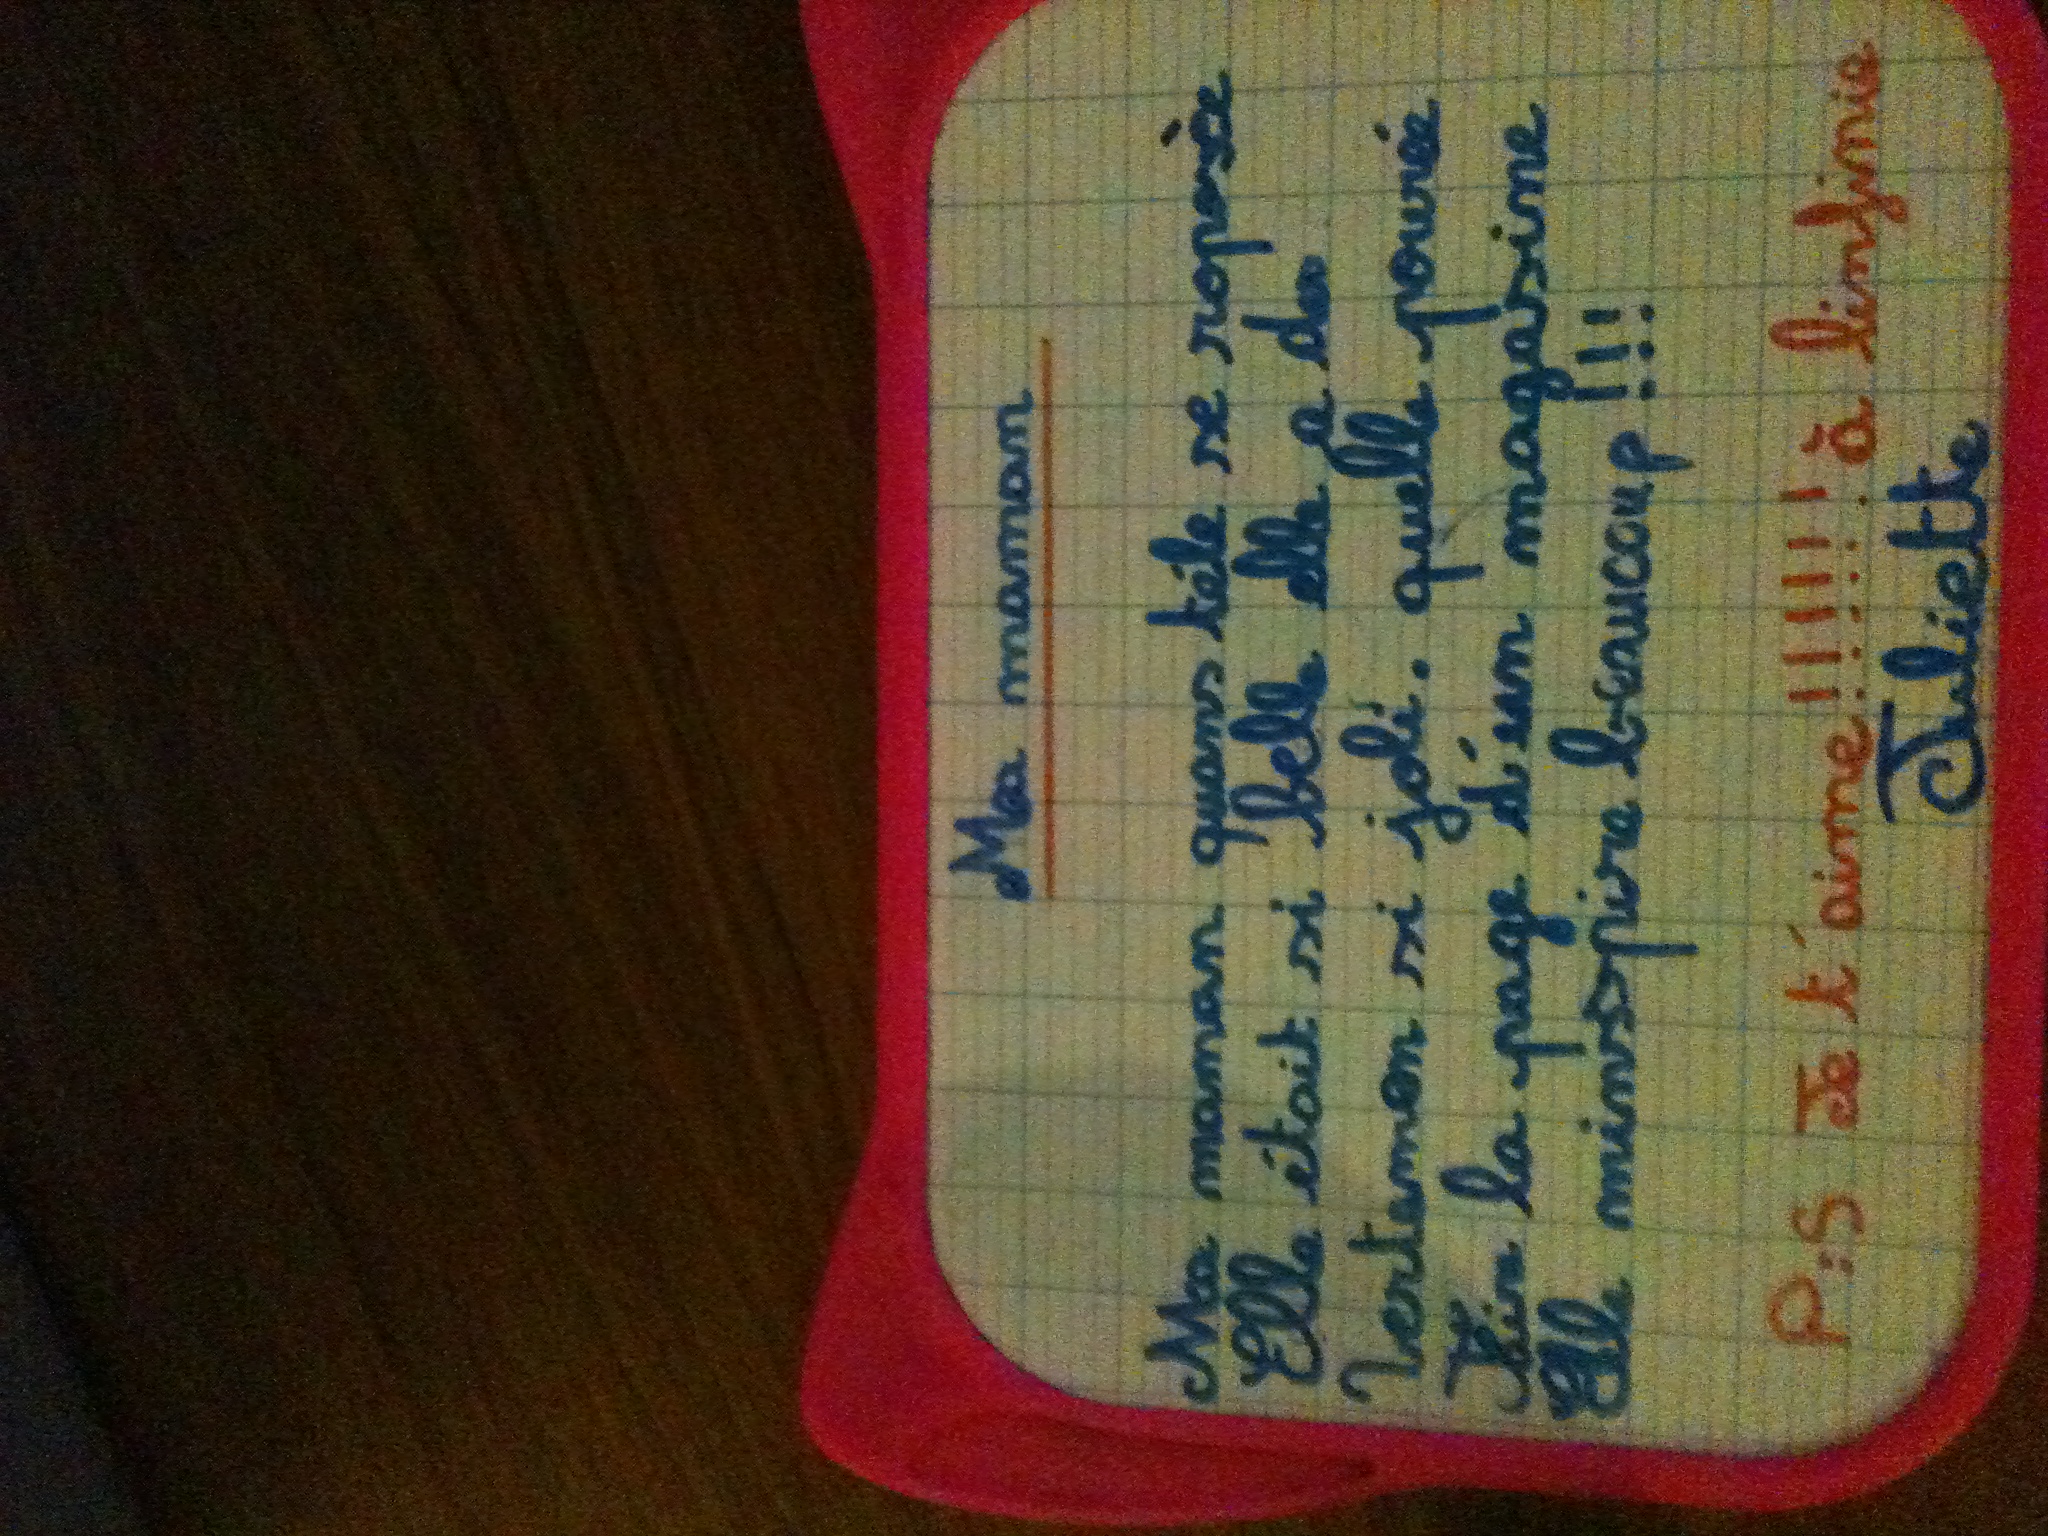 Ma maman
Ma maman quans téle se roposèe
Elle était si belle elle a des
vertemen si joli. quelle pouvié
Fair la page d'un magasine
Elle m'insspira beaucoup !!!
P:S Je t'aime!!!!!!! à linfinie
Juliette